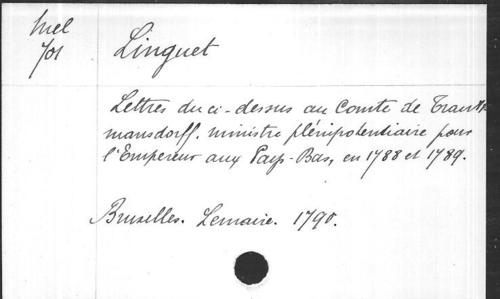 Mel
701
Linguet
Lettres du ci-dessus au Comte de Trautt
mansdorff. ministre plénipotentiaire pour
l'Empereur aux Pays-Bas, en 1788 et 1789.
Bruxelles. Lemaire. 1790.